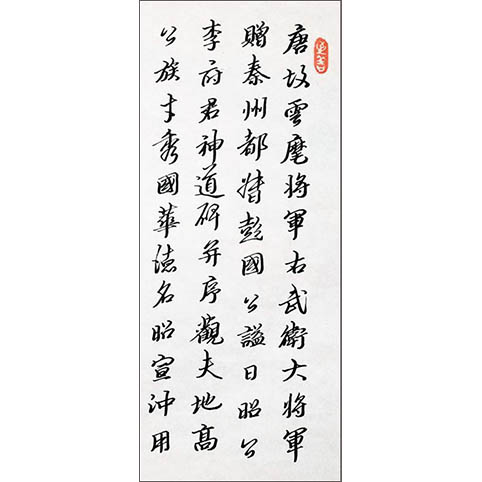 唐故雲麾將軍右武衛大將軍
贈秦州都督彭國公謚曰昭公
李府君神道碑并序觀夫地高
公族才秀國華德名昭宣沖用